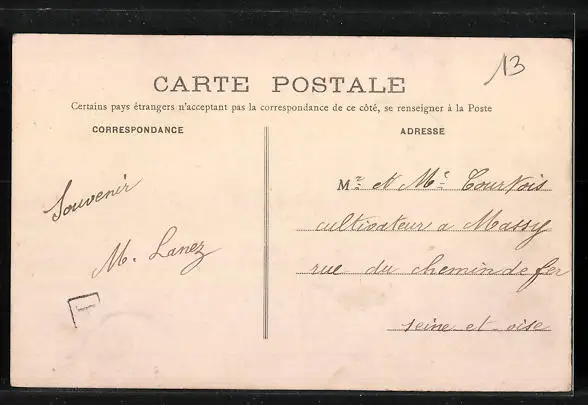 13
CARTE POSTALE
Certains pays étrangers n'acceptant pas la correspondance de ce côté, se renseigner à la Poste
CORRESPONDANCE
Souvenir
M. Lanez
T
ADRESSE
Mr et Me Courtois
cultivateur a Massy
rue du chemin de fer
seine et oise